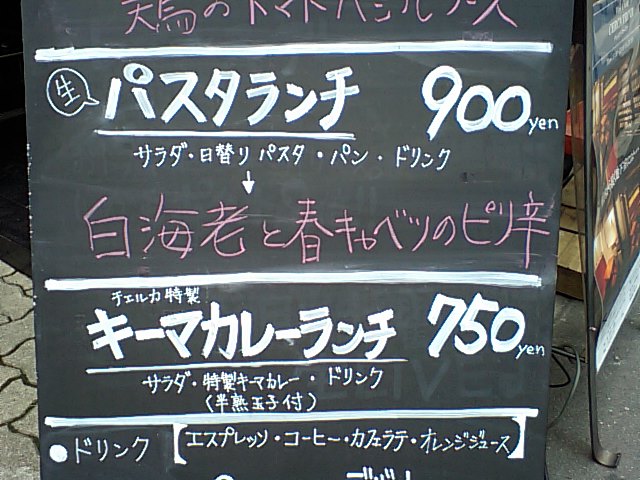 鶏のトマトバジルソース
生 パスタランチ 900yen
サラダ・日替りパスタ・パン・ドリンク
↓
白海老と春キャベツのピリ辛
チェルカ特製
キーマカレーランチ 750yen
サラダ・特製キーマカレー・ドリンク
(半熟玉子付)
●ドリンク [エスプレッソ・コーヒー・カフェラテ・オレンジジュース]